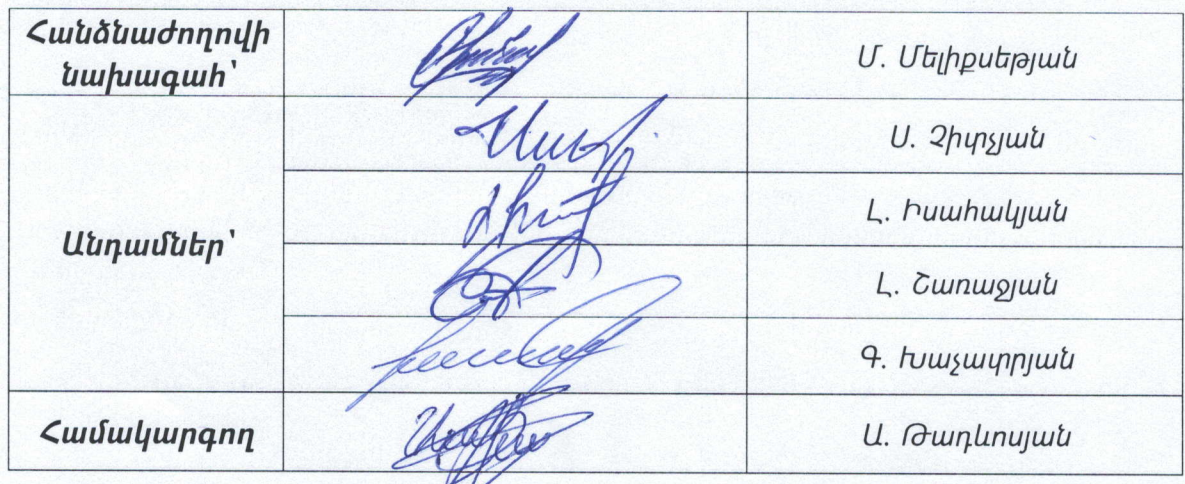 Հանձնաժողովի
նախագահ՝
Մ. Մելիքսեթյան
Անդամներ՝
Ս. Չիտչյան
Լ. Իսահակյան
Լ. Շառաջյան
Գ. Խաչատրյան
Համակարգող
Ա. Թադևոսյան